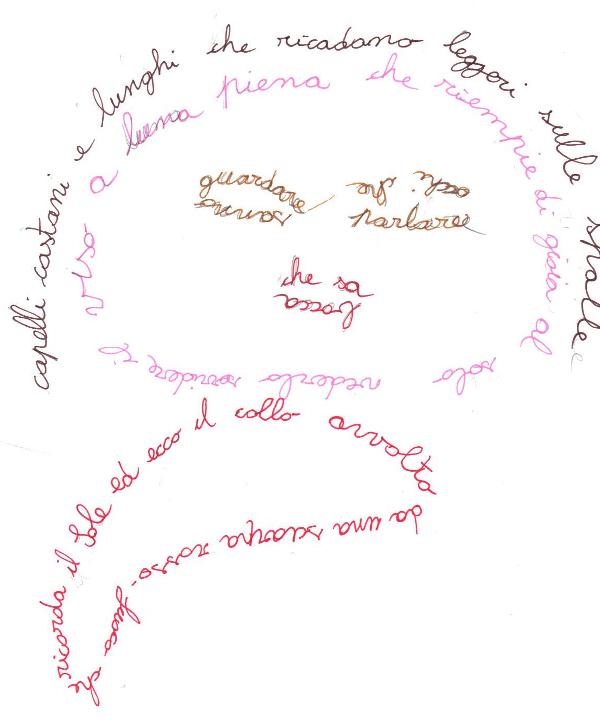 capelli castani e lunghi che ricadano leggeri sulle spalle e
viso a luna piena che riempie di gioia al solo vederlo sorridere il
occhi che
guardare
sanno
parlare e
che sa
bocca
ed ecco il collo avvolto da una sciarpa rosso-fuoco che ricorda il Sole